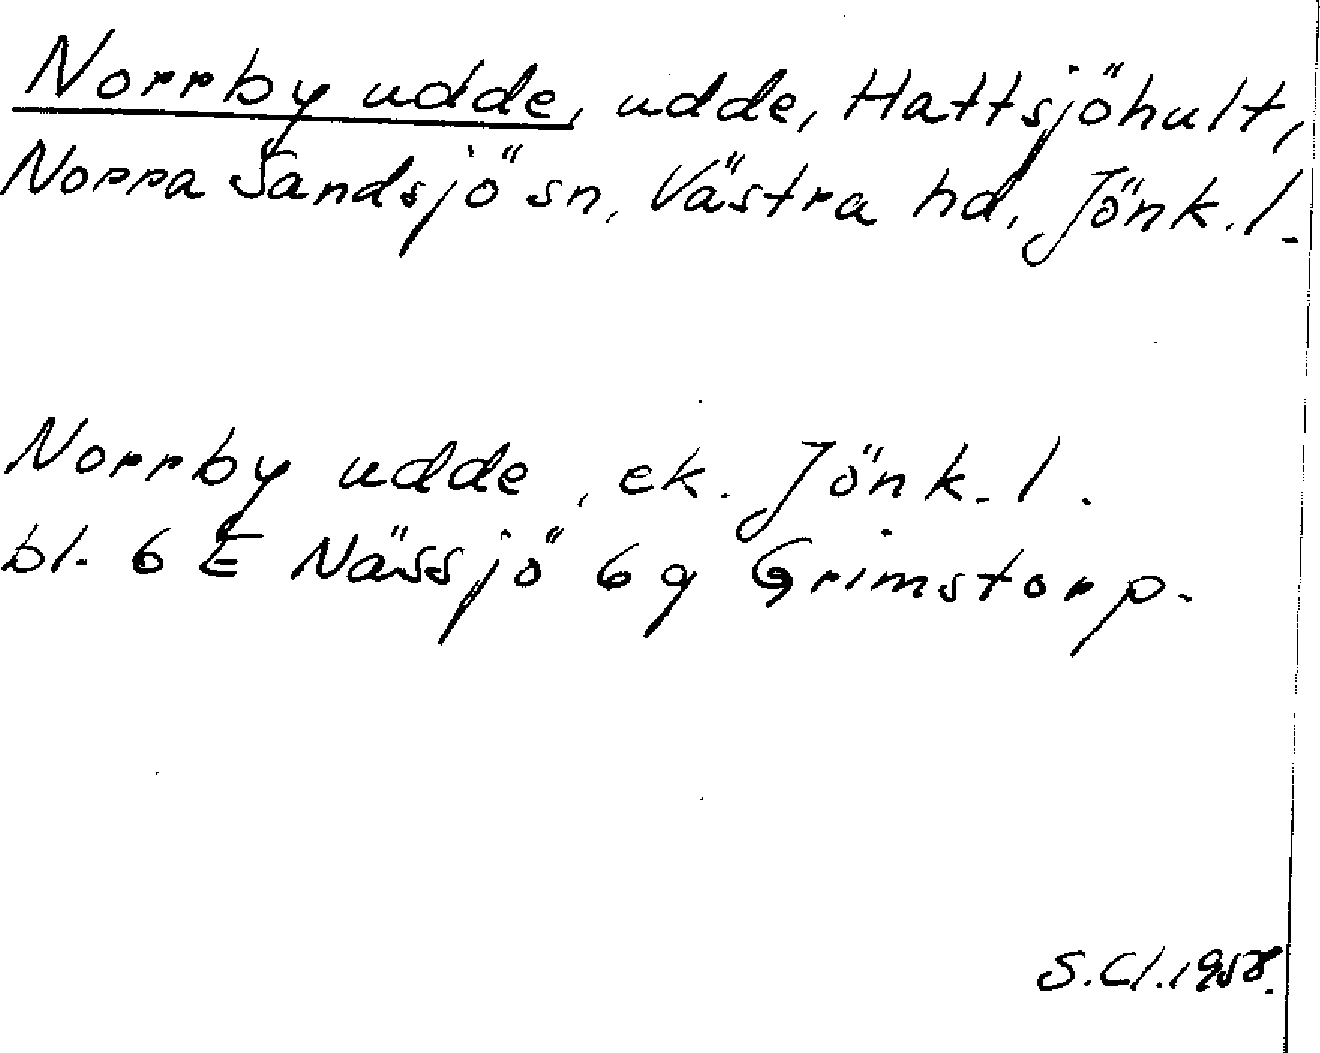 Norrby udde, udde, Hattsjöhult,
Norra Sandsjö sn, Västra hd, Jönk.l.
Norrby udde, ek. Jönk.l.
bl. 6 E Nässjö 6 g Grimstorp.
S.Cl.1958.